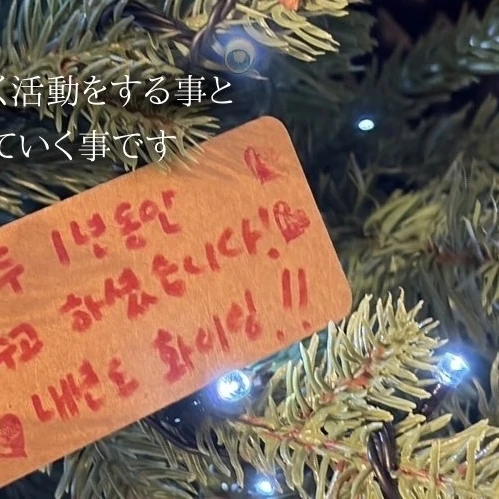 く活動をする事と
ていく事です
두 1년동안
수고 하셨습니다!
내년도 화이팅!!